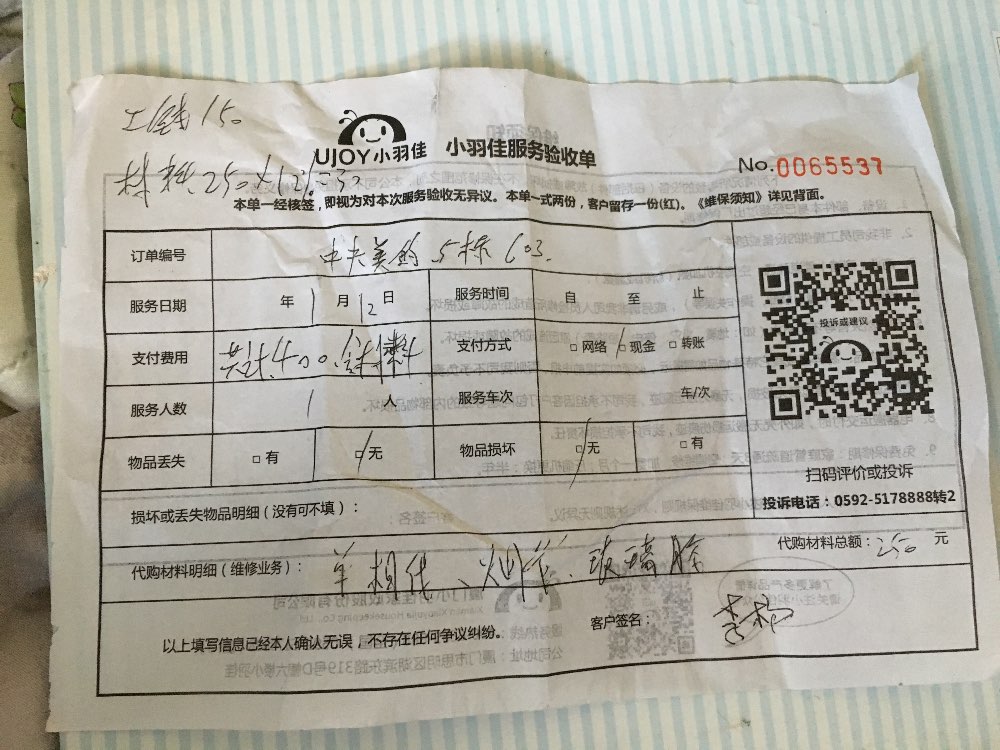 工钱150
UJOY小羽佳 小羽佳服务验收单
No.0065537
材料250
本单一经核签，即视为对本次服务验收无异议。本单一式两份，客户留存一份(红)。《维保须知》详见背面。
订单编号 中央美的 5栋 603.
服务日期 年 1 月 12 日 服务时间 自 至 止
支付费用 共计400. 支付方式 □网络 □现金 □转账
投诉或建议
服务人数 1 人 服务车次 车/次
物品丢失 □有 □无 物品损坏 □无 □有
扫码评价或投诉
损坏或丢失物品明细（没有可不填）：
投诉电话：0592-5178888转2
代购材料明细（维修业务）： 玻璃胶
代购材料总额：250 元
以上填写信息已经本人确认无误，不存在任何争议纠纷。
客户签名：